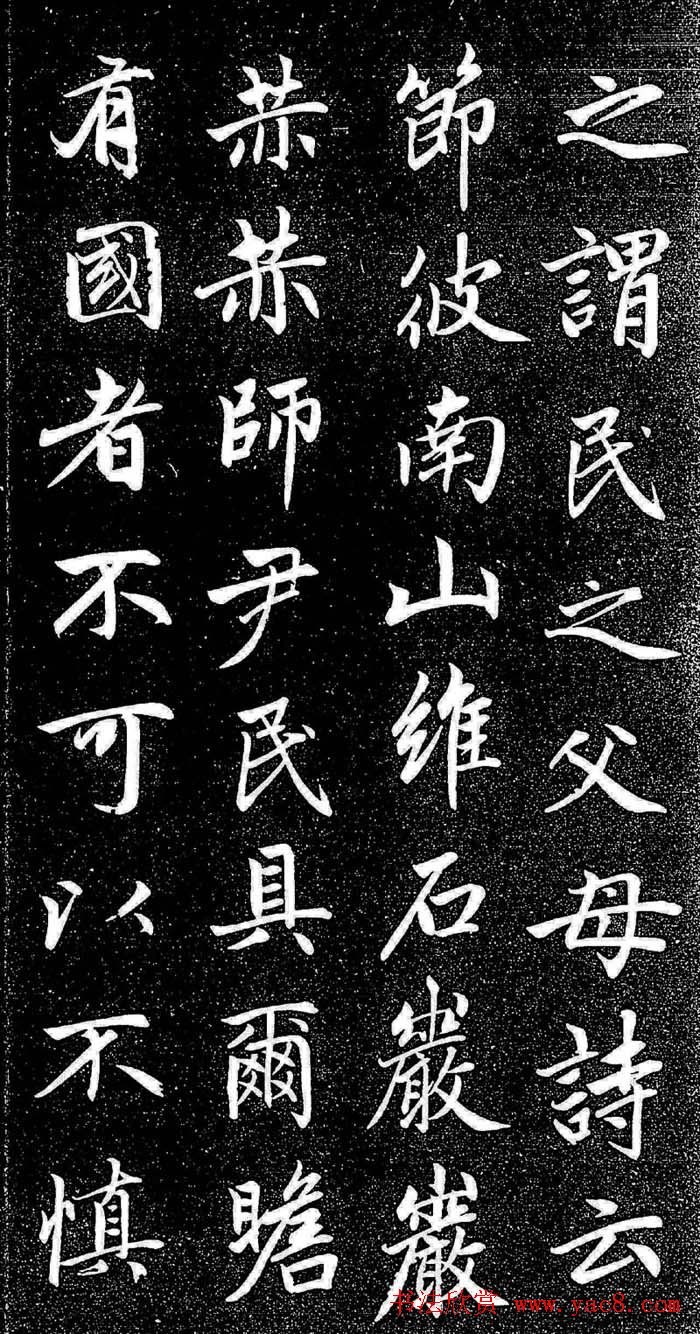 之謂民之父母詩云
節彼南山維石巖巖
赫赫師尹民具爾瞻
有國者不可以不慎
书法欣赏 www.yac8.com